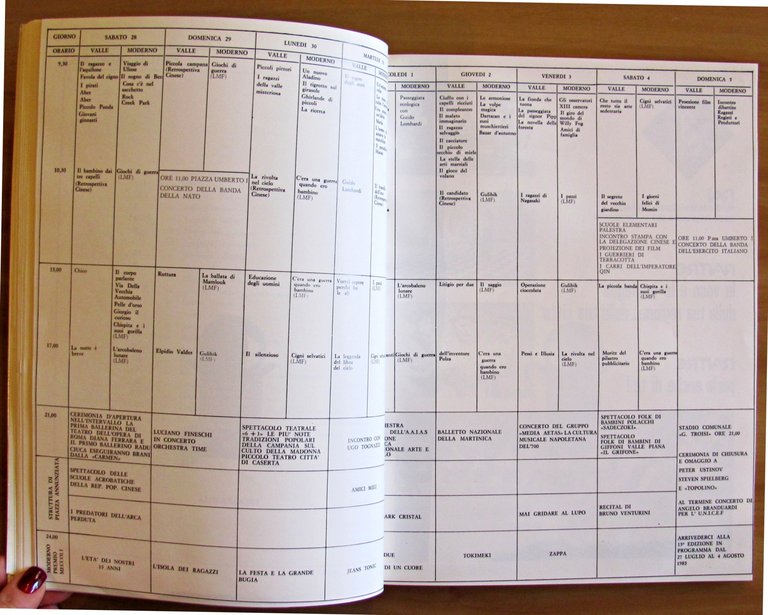 GIORNO
ORARIO
SABATO 28
VALLE
MODERNO
DOMENICA 29
VALLE
MODERNO
LUNEDI 30
VALLE
MODERNO
VALLE
9,30
Il ragazzo e
l'aquilone
Favola del cigno
I pirati
Aber
Aber
Piccolo Panda
Giovani
ginnasti
Viaggio di
Ulisse
Il sogno di Ben
Cosa c'è nel
sacchetto
Rock
Creek Park
Piccola campana
(Retrospettiva
Cinese)
Giochi di
guerra
(LMF)
Piccoli pittori
I ragazzi
della valle
misteriosa
Un nuovo
Aladino
Il rignotto nel
girando
Ghirlande di
piccoli
La ricerca
10,30
Il bambino dai
tre capelli
(Retrospettiva
Cinese)
Giochi di guerra
(LMF)
ORE 11,00 PIAZZA UMBERTO I
CONCERTO DELLA BANDA
DELLA NATO
La rivolta
nel cielo
(Retrospettiva
Cinese)
C'era una guerra
quando ero
bambino
(LMF)
Guido
Lombardi
15,00
Chico
Il corpo
parlante
Via Della
Vecchia
Automobile
Pelle d'orso
Giorgio il
curioso
Chispita e i
suoi gorilla
(LMF)
Rottura
La ballata di
Mamlouk
(LMF)
Educazione
degli uomini
C'era una guerra
quando ero
bambino
(LMF)
17,00
La notte è
breve
L'arcobaleno
lunare
(LMF)
Elpidio Valdez
Gulibik
(LMF)
Il silenzioso
Cigni selvatici
(LMF)
La leggenda
del libro
del cielo
21,00
CERIMONIA D'APERTURA
NELL'INTERVALLO LA
PRIMA BALLERINA DEL
TEATRO DELL'OPERA DI
ROMA DIANA FERRARA E
IL PRIMO BALLERINO RADU
CIUCA ESEGUIRANNO BRANI
DALLA «CARMEN»
LUCIANO FINESCHI
IN CONCERTO
ORCHESTRA TIME
SPETTACOLO TEATRALE
«6 + 1» LE PIU' NOTE
TRADIZIONI POPOLARI
DELLA CAMPANIA SUL
CULTO DELLA MADONNA
PICCOLO TEATRO CITTA'
DI CASERTA
INCONTRO CON
UGO TOGNAZZI
STRUTTURA DI
PIAZZA ANNUNZIATA
SPETTACOLO DELLE
SCUOLE ACROBATICHE
DELLA REP. POP. CINESE
AMICI MIEI
I PREDATORI DELL'ARCA
PERDUTA
24,00
MODERNO
PREMIO
MECCOLI
L'ETA' DEI NOSTRI
15 ANNI
L'ISOLA DEI RAGAZZI
LA FESTA E LA GRANDE
BUGIA
JEANS TONIC
COLEDI 1
MODERNO
GIOVEDI 2
VALLE
MODERNO
VENERDI 3
VALLE
MODERNO
SABATO 4
VALLE
MODERNO
DOMENICA 5
VALLE
MODERNO
Passeggiata
ecologica
con
Guido
Lombardi
Ciuffo con i
capelli ricciuti
Il compleanno
Il malato
immaginario
Il ragazzo
selvaggio
Il cacciatore
Il piccolo
secchio di miele
La stella delle
arti marziali
Il gioco del
volano
Le armonione
La volpe
magica
Dartacan e i
tre
moschettieri
Bazar d'autunno
La fionda che
tuona
La passeggiata
del signor Pipp
La novella della
foresta
Gli osservatori
XIII camera
Il giro del
mondo di
Willy Fog
Amici di
famiglia
Che tutto il
resto sia arte
sedentaria
Cigni selvatici
(LMF)
Proiezione film
vincente
Incontro
dibattito
Ragazzi
Registi e
Produttori
Il candidato
(Retrospettiva
Cinese)
Gulibik
(LMF)
I ragazzi di
Nagasaki
I pazzi
(LMF)
Il segreto
del vecchio
giardino
I giorni
felici di
Momin
SCUOLE ELEMENTARI
PALESTRA
INCONTRO STAMPA CON
LA DELEGAZIONE CINESE E
PROIEZIONE DEI FILM
I GUERRIERI DI
TERRACOTTA
I CARRI DELL'IMPERATORE
QIN
ORE 11,00 P.zza UMBERTO I
CONCERTO DELLA BANDA
DELL'ESERCITO ITALIANO
L'arcobaleno
lunare
(LMF)
Litigio per due
Il saggio
(LMF)
Operazione
cioccolata
Gulibik
(LMF)
La piccola banda
Chispita e i
suoi gorilla
(LMF)
Giochi di guerra
(LMF)
dell'inventore
Polza
C'era una
guerra
quando ero
bambino
(LMF)
Pensi e Illusia
La rivolta nel
cielo
(LMF)
Moritz del
pilastro
pubblicitario
C'era una guerra
quando ero
bambino
(LMF)
DELL'A.A.I.A.S
NALE ARTE E
BALLETTO NAZIONALE
DELLA MARTINICA
CONCERTO DEL GRUPPO
«MEDIA AETAS» LA CULTURA
MUSICALE NAPOLETANA
DEL'700
SPETTACOLO FOLK DI
BAMBINI POLACCHI
«SADECZIOKI»
SPETTACOLO
FOLK DI BAMBINI DI
GIFFONI VALLE PIANA
«IL GRIFONE»
STADIO COMUNALE
«G. TROISI» ORE 21,00
CERIMONIA DI CHIUSURA
E OMAGGIO A
PETER USTINOV
STEVEN SPIELBERG
E «TOPOLINO»
ARK CRISTAL
MAI GRIDARE AL LUPO
RECITAL DI
BRUNO VENTURINI
AL TERMINE CONCERTO DI
ANGELO BRANDUARDI
PER L' U.N.I.C.E.F
DUE
DI UN CUORE
TOKIMEKI
ZAPPA
ARRIVEDERCI ALLA
15ª EDIZIONE IN
PROGRAMMA DAL
27 LUGLIO AL 4 AGOSTO
1985